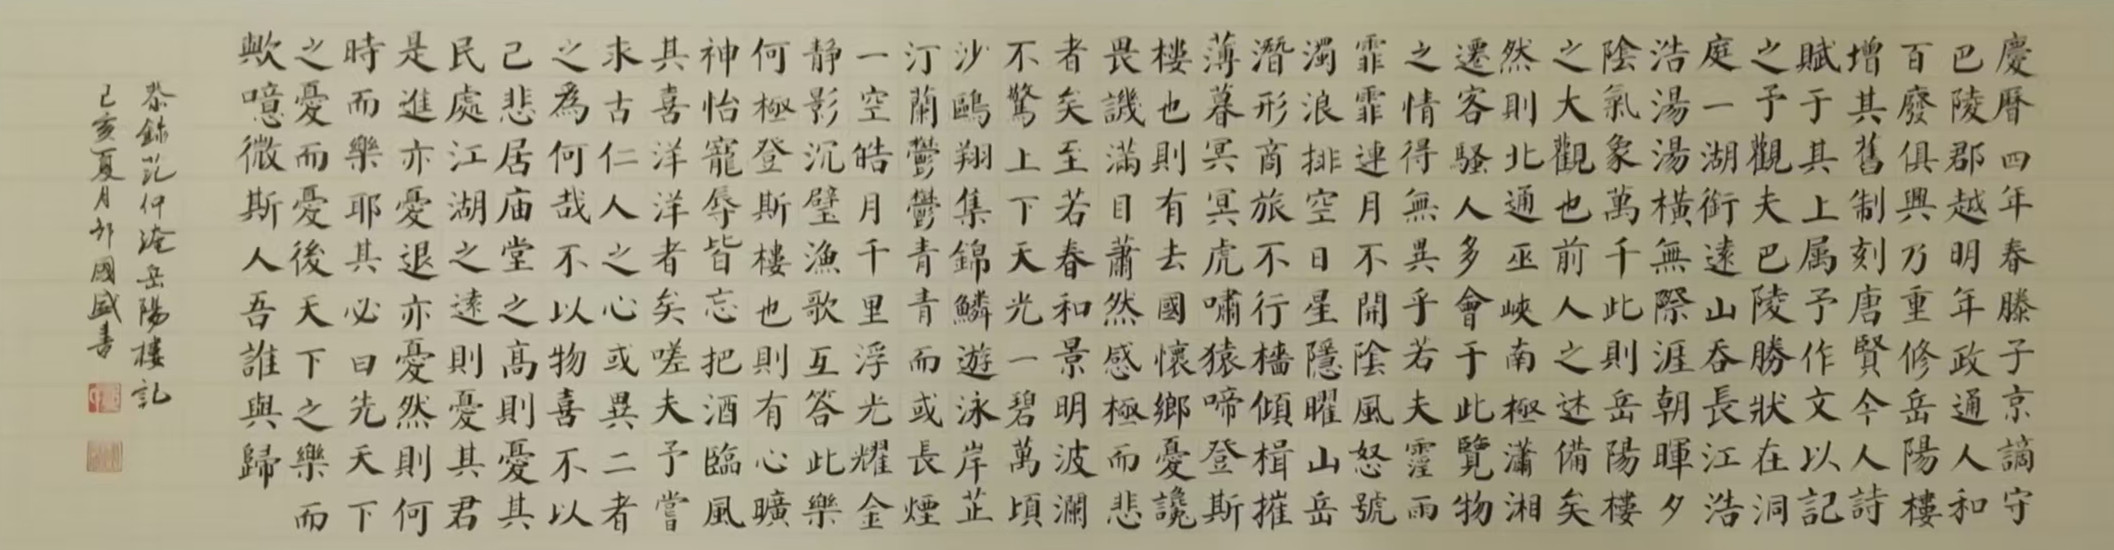 慶曆四年春滕子京謫守
巴陵郡越明年政通人和
百廢俱興乃重修岳陽樓
增其舊制刻唐賢今人詩
賦于其上属予作文以記
之予觀夫巴陵勝狀在洞
庭一湖銜遠山吞長江浩
浩湯湯橫無際涯朝暉夕
陰氣象萬千此則岳陽樓
之大觀也前人之述備矣
然則北通巫峽南極瀟湘
遷客騷人多會于此覽物
之情得無異乎若夫霪雨
霏霏連月不開陰風怒號
濁浪排空日星隱曜山岳
潛形商旅不行檣傾楫摧
薄暮冥冥虎嘯猿啼登斯
樓也則有去國懷鄉憂讒
畏譏滿目蕭然感極而悲
者矣至若春和景明波瀾
不驚上下天光一碧萬頃
沙鷗翔集錦鱗遊泳岸芷
汀蘭鬱鬱青青而或長煙
一空皓月千里浮光耀金
靜影沉璧漁歌互答此樂
何極登斯樓也則有心曠
神怡寵辱皆忘把酒臨風
其喜洋洋者矣嗟夫予嘗
求古仁人之心或異二者
之為何哉不以物喜不以
己悲居庙堂之高則憂其
民處江湖之遠則憂其君
是進亦憂退亦憂然則何
時而樂耶其必曰先天下
之憂而憂後天下之樂而
歟噫微斯人吾誰與歸
恭錄范仲淹岳陽樓記
己亥夏月國盛書